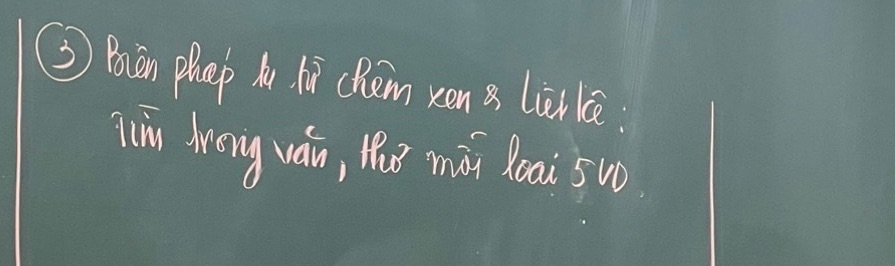 ③ Biện pháp tu từ chêm xen & liệt kê:
Tìm trong văn, thơ mỗi loại 5 VD